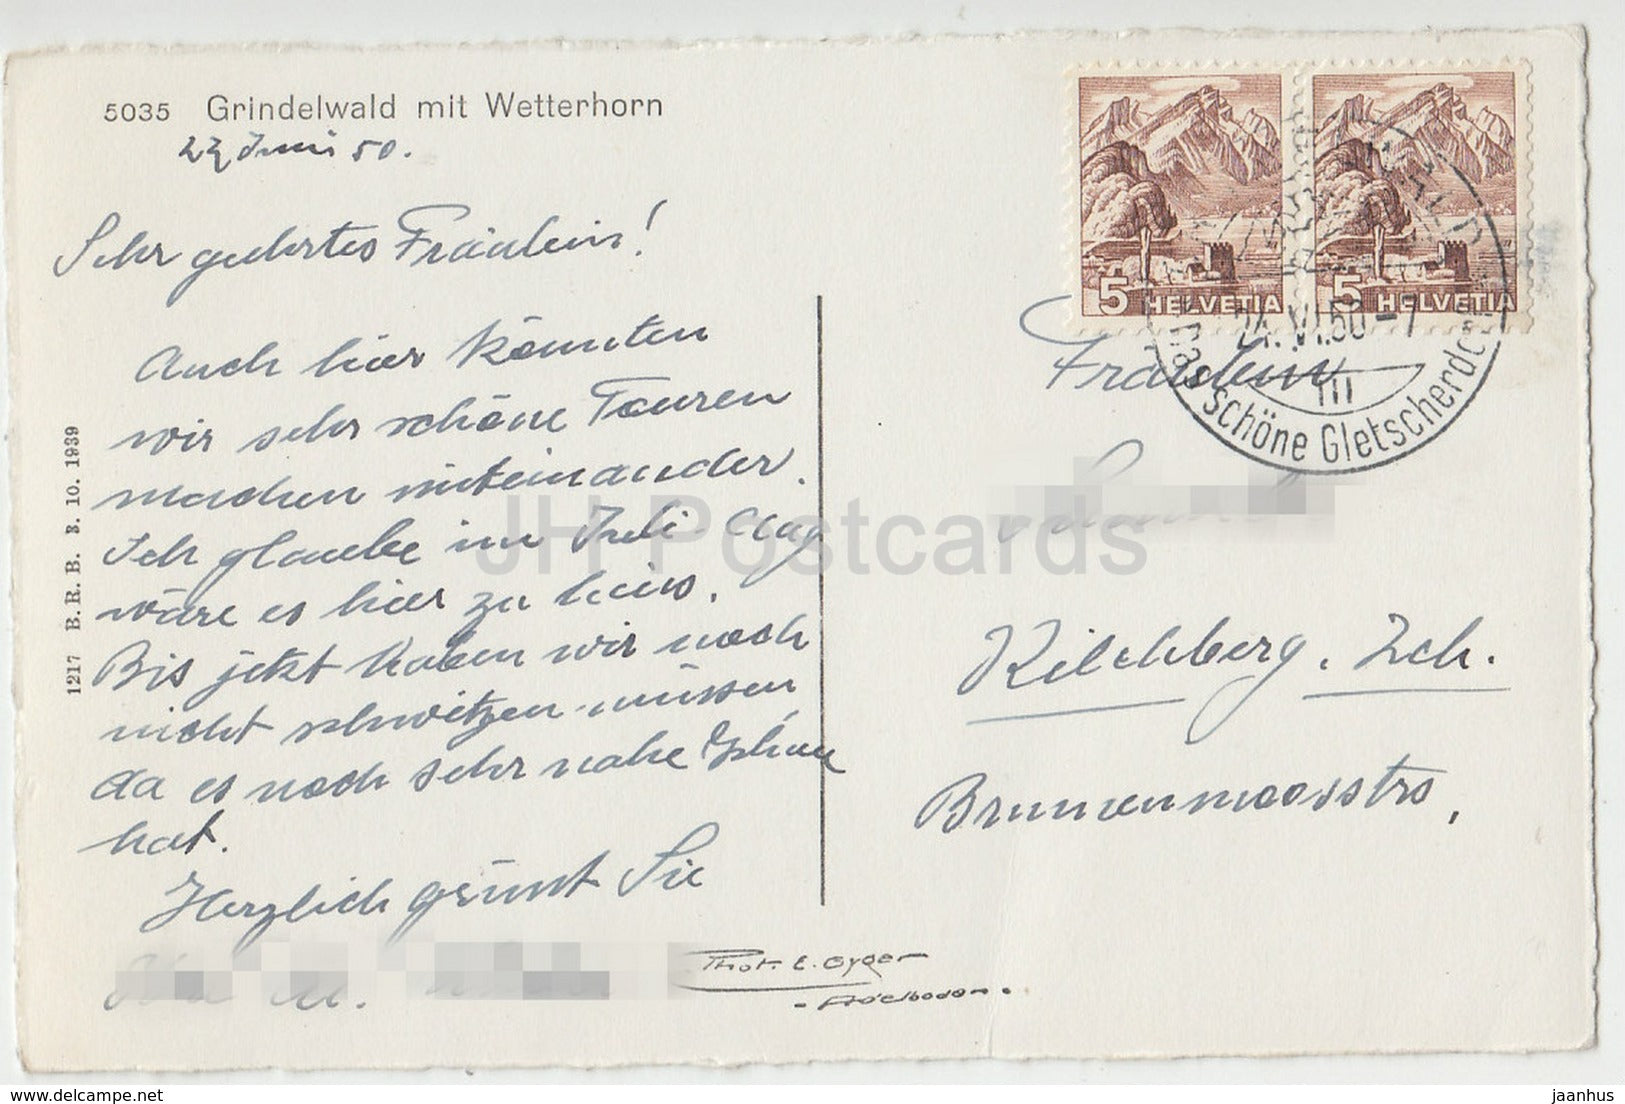 5035 Grindelwald mit Wetterhorn
Juni 50.
Sehr geehrtes Fräulein!
Auch hier könnten
wir sehr schöne Touren
machen miteinander.
Ich glaube im Juli-Aug
wäre es hier zu heiss.
Bis jetzt haben wir noch
nicht schwitzen müssen
da es noch sehr nahe Schnee
hat.
Herzlich grüsst Sie
Phot. E. Gyger
- Adelboden -
1217 B. R. B. 3. 10. 1939
5 HELVETIA
5 HELVETIA
24. VI. 50 - 7
III
Das schöne Gletscherdorf
Fräulein
Kilchberg. Zch.
Brunnenmoosstrs,
JH Postcards
delcampe.net
jaanhus